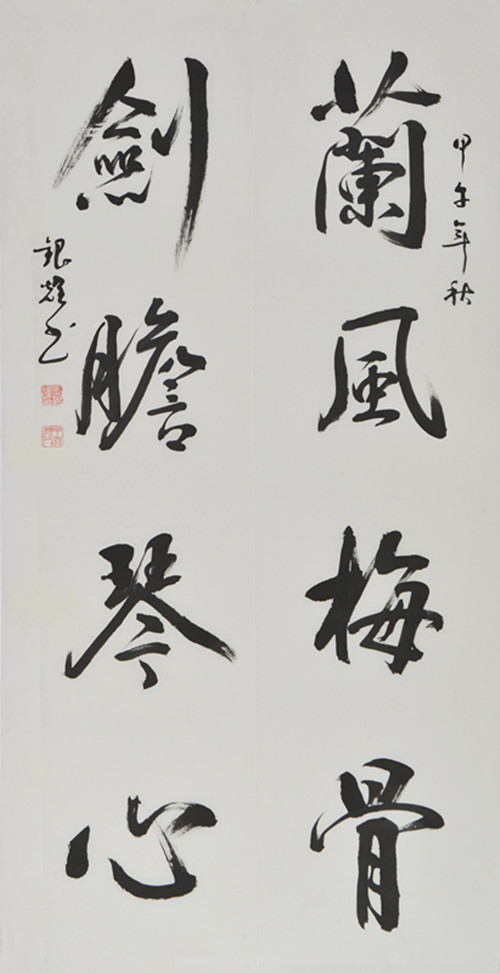 甲午年秋
蘭風梅骨
劍膽琴心
銀雄书